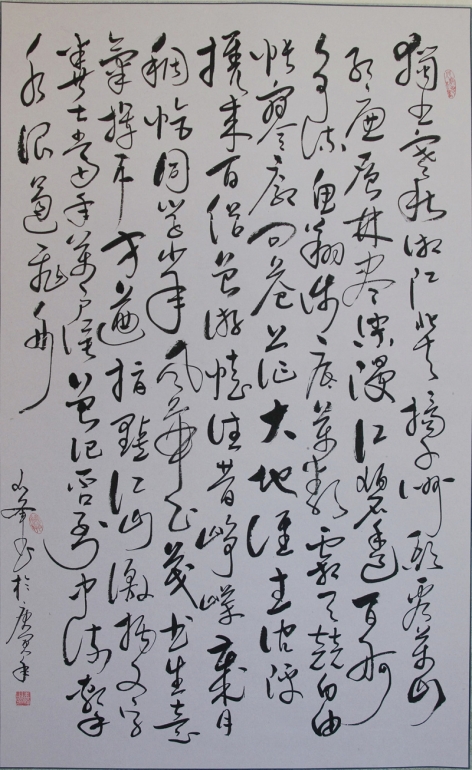 獨立寒秋湘江北去橘子洲頭看萬山
紅遍層林盡染漫江碧透百舸
爭流魚翔淺底萬類霜天競自由
悵寥廓問蒼茫大地誰主沉浮
攜來百侣曾游憶往昔崢嶸歲月
稠恰同學少年風華正茂書生意
氣揮斥方遒指點江山激揚文字
糞土當年萬戶侯曾記否到中流擊
水浪遏飛舟
書於庚寅年